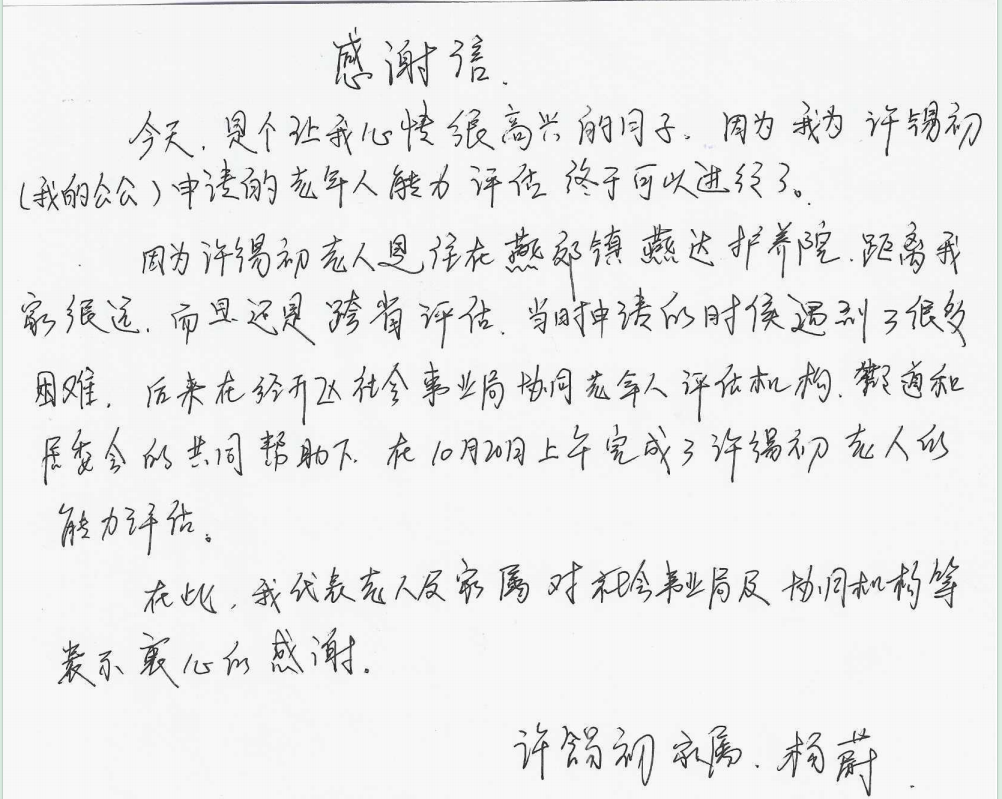 感谢信.
今天,是个让我心情很高兴的日子。因为我为许锡初
(我的公公)申请的老年人能力评估终于可以进行了。
因为许锡初老人是住在燕郊镇燕达护养院.距离我
家很远.而且还是跨省评估.当时申请的时侯遇到了很多
困难.后来在经开区社会事业局协同老年人评估机构.街道和
居委会的共同帮助下.在10月20日上午完成了许锡初老人的
能力评估。
在此,我代表老人及家属对社会事业局及协同机构等
表示衷心的感谢.
许锡初家属.杨蔚.